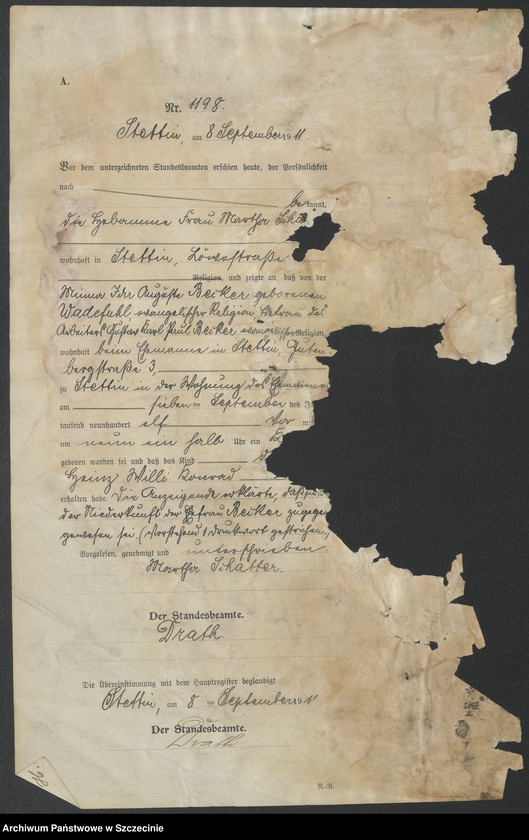 A.
Nr. 1198.
Stettin, am 8 September 1911.
Vor dem unterzeichneten Standesbeamten erschien heute, der Persönlichkeit
nach
bekannt,
die Hebamme Frau Martha Scha
wohnhaft in Stettin, Löwestraße
Religion, und zeigte an, daß von der
Minna Ida Auguste Beiker geborenen
Wadefuhl evangelischer Religion, Ehefrau des
Arbeiters Gustav Karl Paul Beiker evangelischer Religion
wohnhaft beim Ehemanne in Stettin, Guten
bergstraße 3,
zu Stettin in der Wohnung des Ehemannes
am sieben ten September des J
tausend neunhundert elf Vor mi
um neun ein halb Uhr ein
geboren worden sei und daß das Kind
Heinz Willi Konrad
erhalten habe. Die Anzeigende erklärte, daß
der Niederkunft der Ehefrau Beiker zugege
gewesen sei. (Vorstehend 1 Druckwort gestrichen.)
Vorgelesen, genehmigt und unterschrieben
Martha Schatter.
Der Standesbeamte.
Drath.
Die Übereinstimmung mit dem Hauptregister beglaubigt
Stettin, am 8 ten September 1911
Der Standesbeamte.
Drath
Archiwum Państwowe w Szczecinie